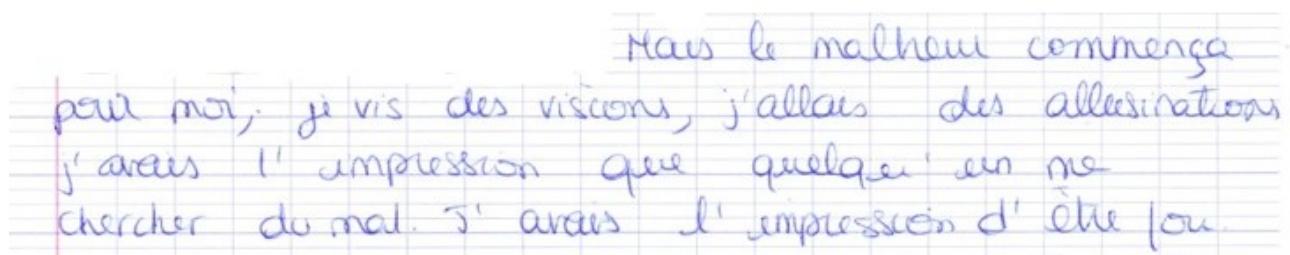 Mais le malheur commença
pour moi, je vis des visions, j'allais des allusinations
j'avais l'impression que quelqu'un me
chercher du mal. J'avais l'impression d'être fou.